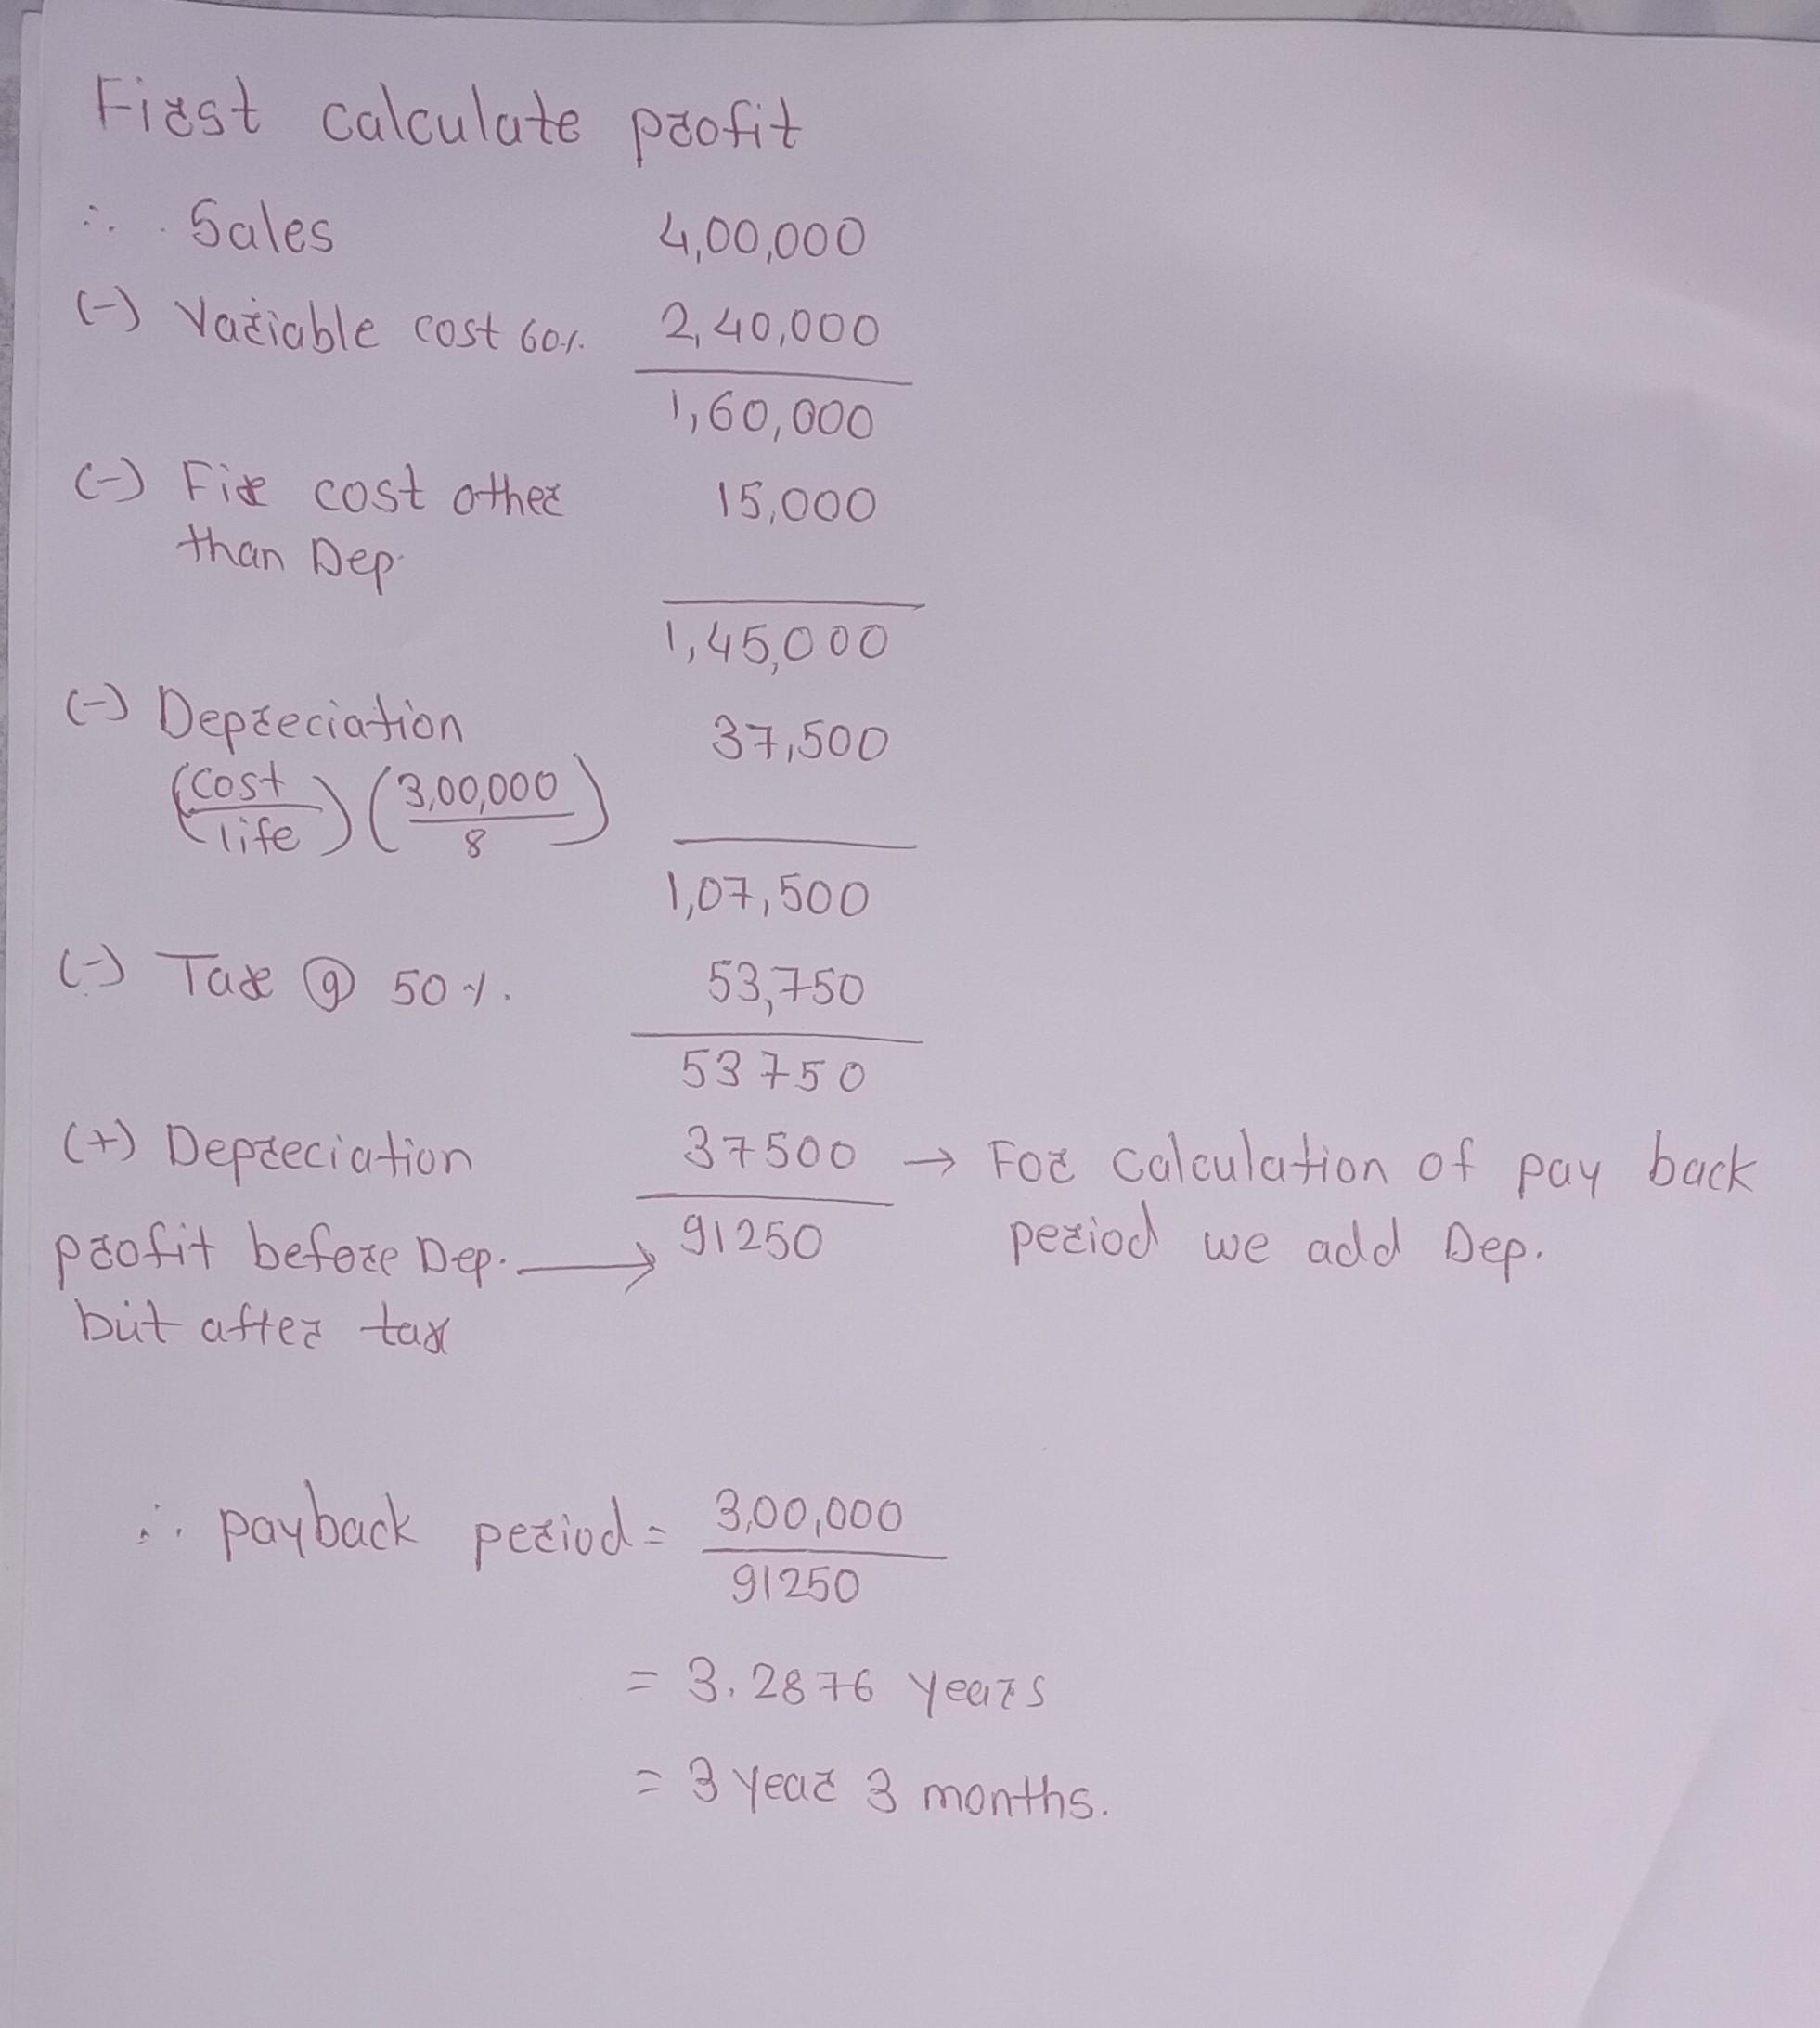 First calculate profit
∴ Sales 4,00,000
(-) Variable cost 60% 2,40,000
1,60,000
(-) Fix cost other 15,000
than Dep.
1,45,000
(-) Depreciation 37,500
(cost/life) (3,00,000/8)
1,07,500
(-) Tax @ 50%. 53,750
53750
(+) Depreciation 37500 → For calculation of pay back
profit before Dep. → 91250 period we add Dep.
but after tax
∴ payback period = 3,00,000
91250
= 3.2876 years
= 3 year 3 months.